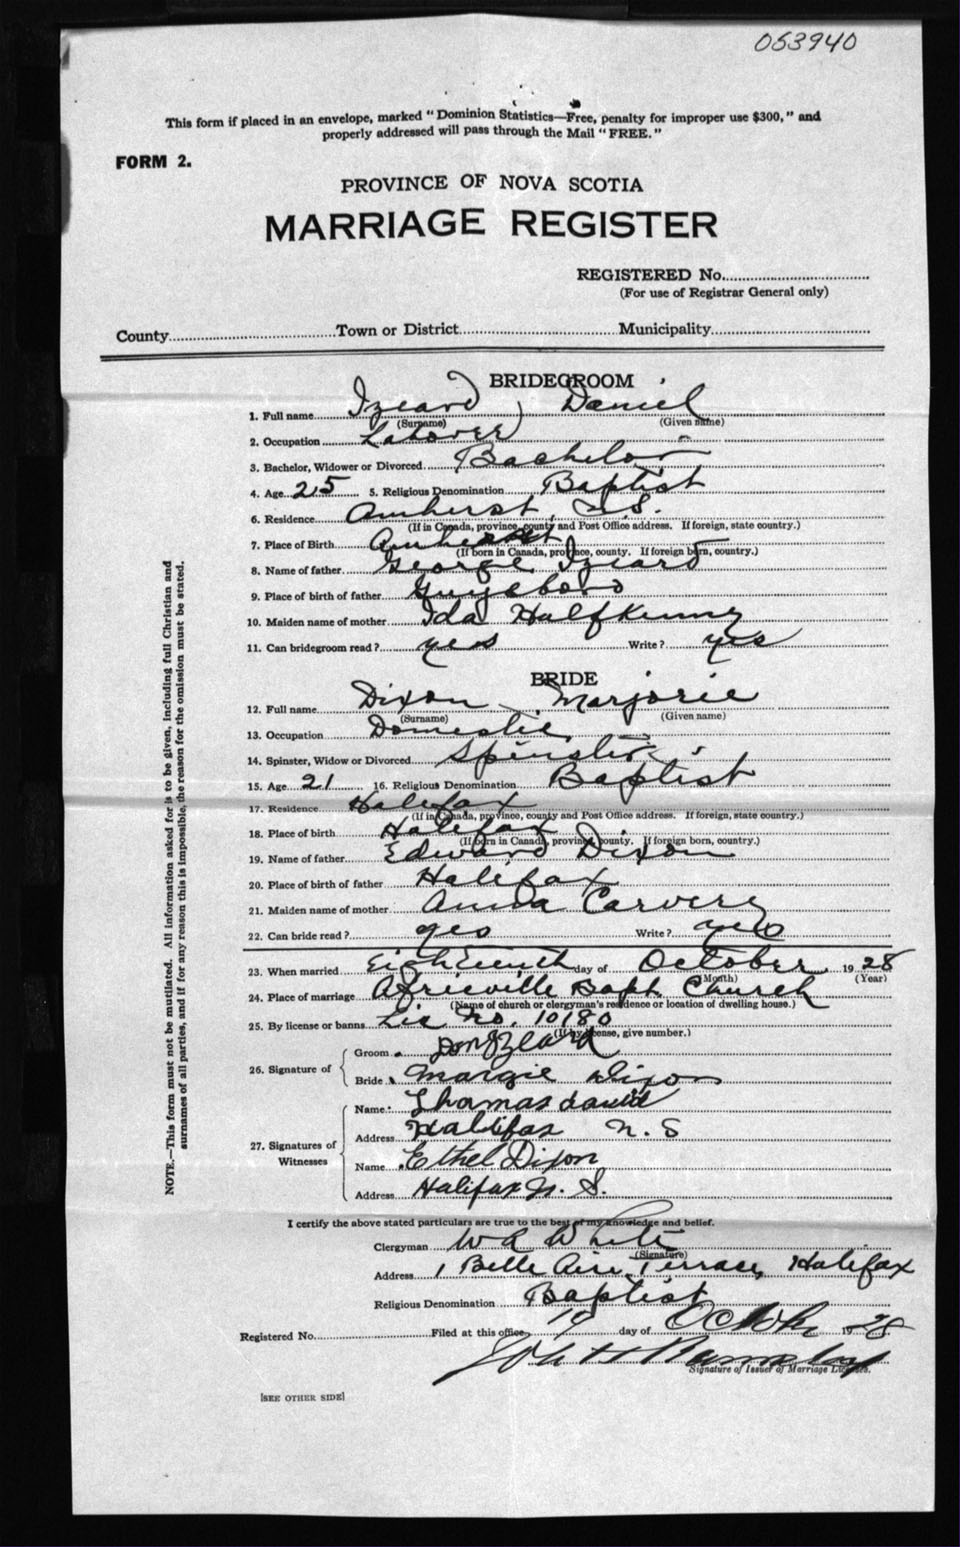 053940
This form if placed in an envelope, marked "Dominion Statistics—Free, penalty for improper use $300," and
properly addressed will pass through the Mail "FREE."
FORM 2.
PROVINCE OF NOVA SCOTIA
MARRIAGE REGISTER
REGISTERED No.
(For use of Registrar General only)
County Town or District Municipality
BRIDEGROOM
1. Full name Izeard, Daniel
(Surname) (Given name)
2. Occupation Laborer
3. Bachelor, Widower or Divorced Bachelor
4. Age 25 5. Religious Denomination Baptist
6. Residence Amherst, N.S.
(If in Canada, province, county and Post Office address. If foreign, state country.)
7. Place of Birth Amherst
(If born in Canada, province, county. If foreign born, country.)
8. Name of father George Izeard
9. Place of birth of father Guysboro
10. Maiden name of mother Ida Halfkenny
11. Can bridegroom read? yes Write? yes
BRIDE
12. Full name Dixon, Marjorie
(Surname) (Given name)
13. Occupation Domestic
14. Spinster, Widow or Divorced Spinster
15. Age 21 16. Religious Denomination Baptist
17. Residence Halifax
(If in Canada, province, county and Post Office address. If foreign, state country.)
18. Place of birth Halifax
(If born in Canada, province, county. If foreign born, country.)
19. Name of father Edward Dixon
20. Place of birth of father Halifax
21. Maiden name of mother Anna Carvery
22. Can bride read? yes Write? yes
23. When married Eighteenth day of October 1928
(Month) (Year)
24. Place of marriage Africville Bapt. Church
(Name of church or clergyman's residence or location of dwelling house.)
25. By license or banns Lic No. 10180
(If by license, give number.)
26. Signature of
Groom
Bride Margie Dixon
27. Signatures of Witnesses
Name Thomas David
Address Halifax N.S
Name Ethel Dixon
Address Halifax N.S.
I certify the above stated particulars are true to the best of my knowledge and belief.
Clergyman W A White
(Signature)
Address 1 Belle Aire Terrace, Halifax
Religious Denomination Baptist
Registered No. Filed at this office 19 day of October 1928
Signature of Issuer of Marriage Licenses.
[SEE OTHER SIDE]
NOTE.—This form must not be mutilated. All information asked for is to be given, including full Christian and
surnames of all parties, and if for any reason this is impossible, the reason for the omission must be stated.